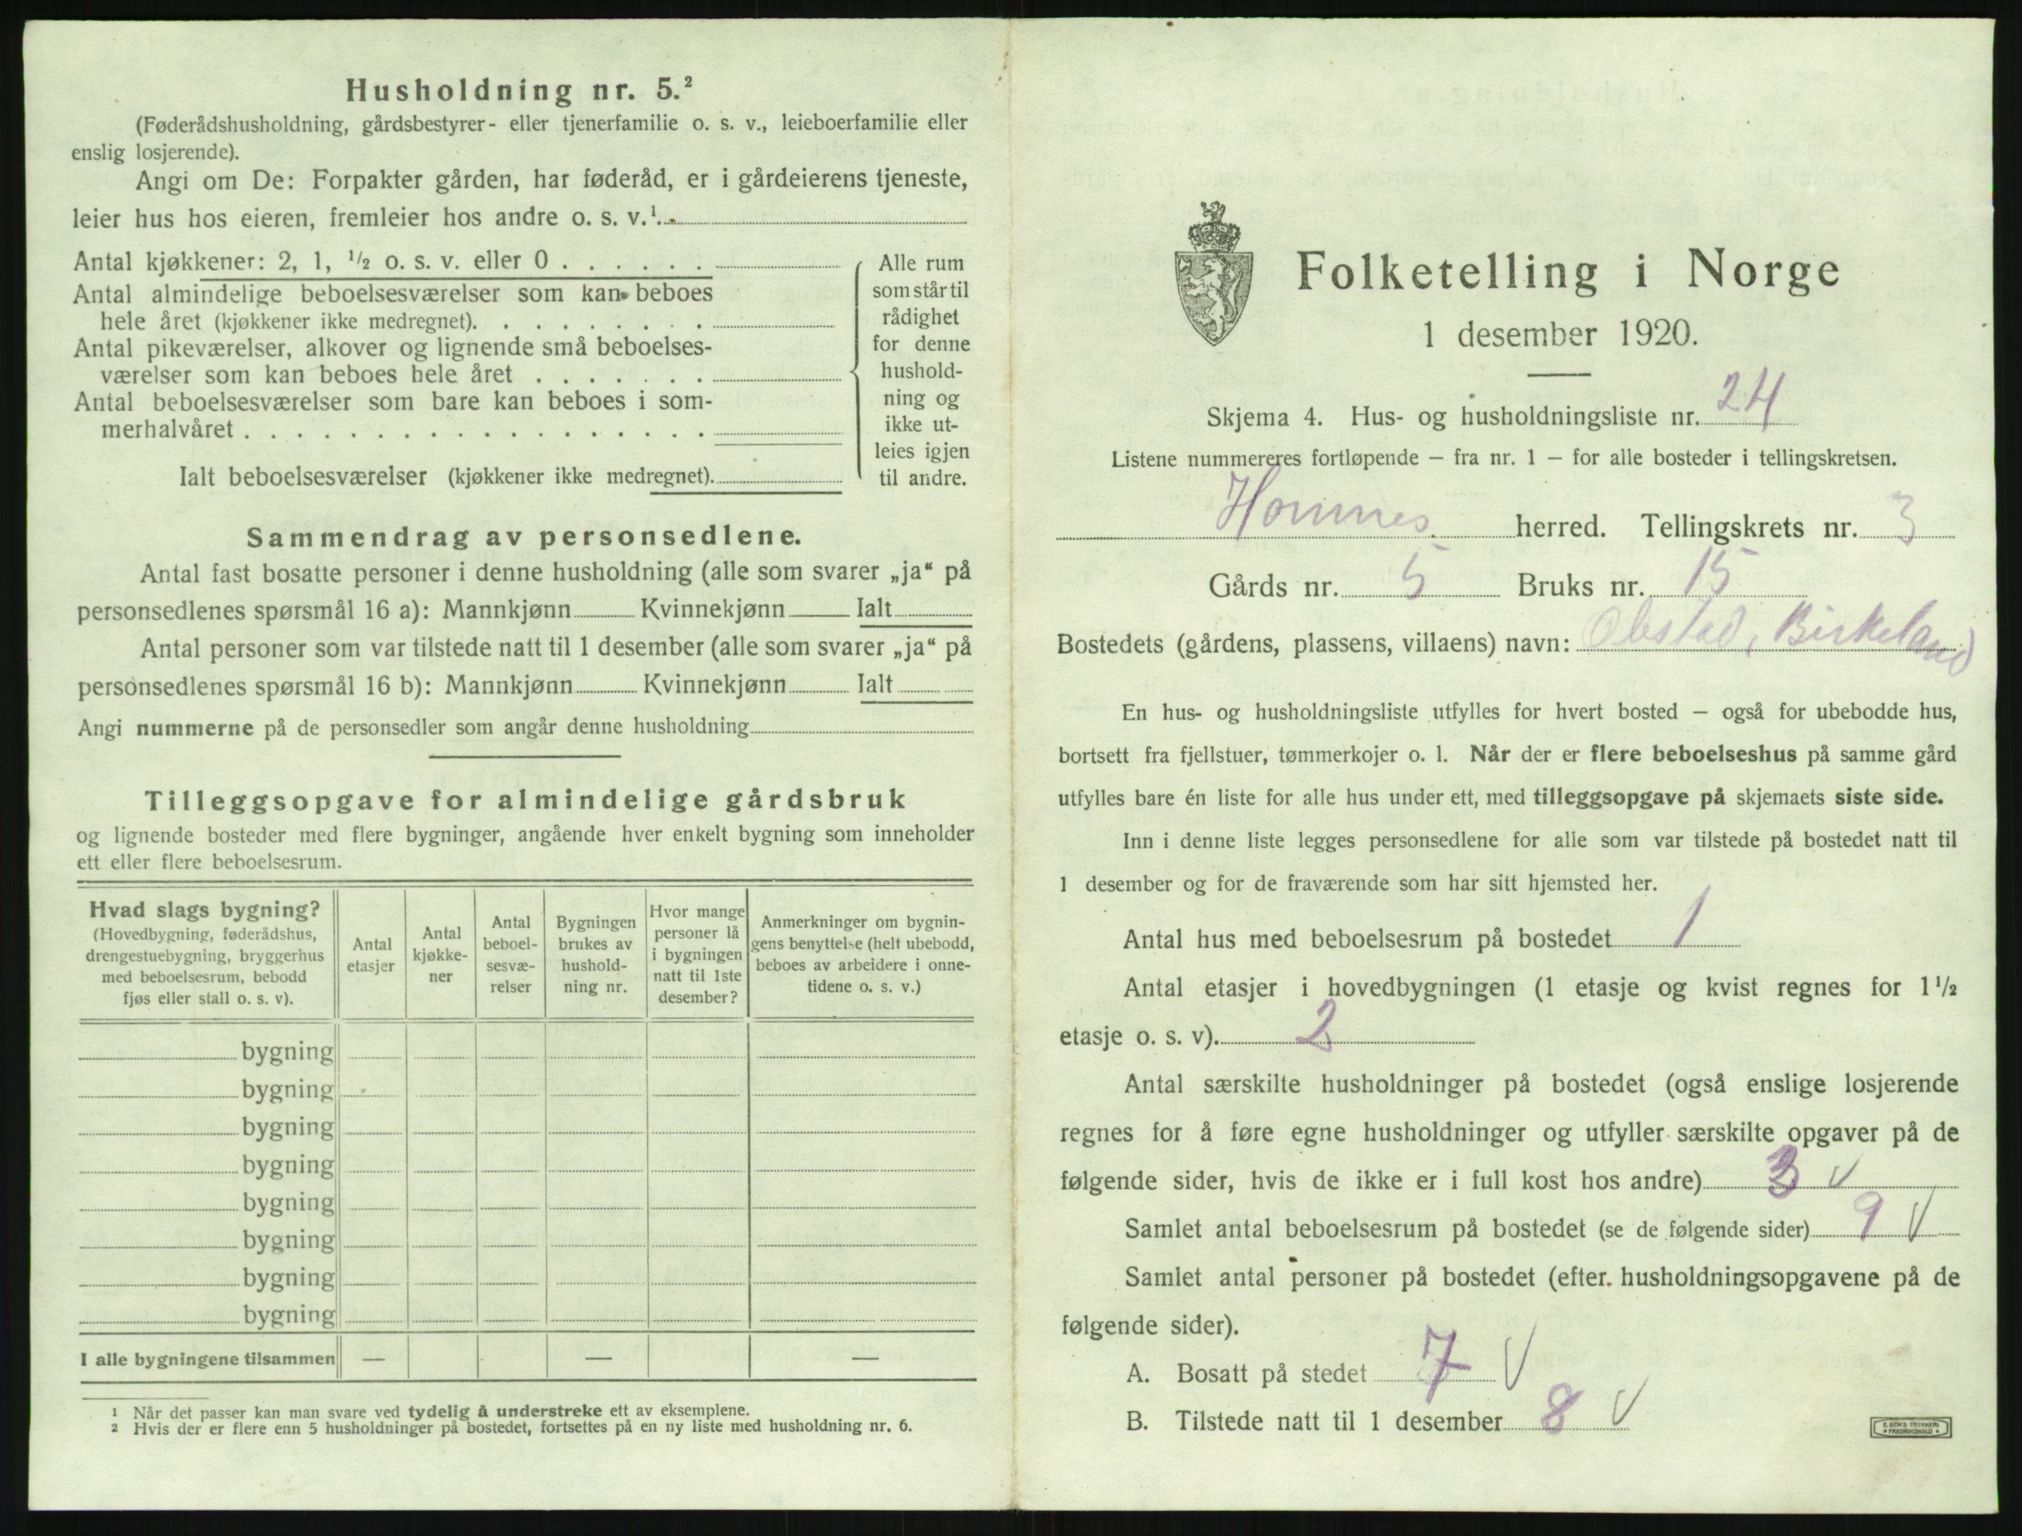 Husholdning nr. 5.²
(Føderådshusholdning, gårdsbestyrer- eller tjenerfamilie o. s. v., leieboerfamilie eller
enslig losjerende).
Angi om De: Forpakter gården, har føderåd, er i gårdeierens tjeneste,
leier hus hos eieren, fremleier hos andre o. s. v.¹
Antal kjøkkener: 2, 1, ½ o. s. v. eller 0 . . . . . .
Antal almindelige beboelsesværelser som kan beboes
hele året (kjøkkener ikke medregnet). . . . . . . . .
Antal pikeværelser, alkover og lignende små beboelses-
værelser som kan beboes hele året . . . . . . .
Antal beboelsesværelser som bare kan beboes i som-
merhalvåret . . . . . . . . . . . . . . . . . .
Ialt beboelsesværelser (kjøkkener ikke medregnet).
Alle rum
som står til
rådighet
for denne
hushold-
ning og
ikke ut-
leies igjen
til andre.
Sammendrag av personsedlene.
Antal fast bosatte personer i denne husholdning (alle som svarer „ja“ på
personsedlenes spørsmål 16 a): Mannkjønn Kvinnekjønn Ialt
Antal personer som var tilstede natt til 1 desember (alle som svarer „ja“ på
personsedlenes spørsmål 16 b): Mannkjønn Kvinnekjønn Ialt
Angi nummerne på de personsedler som angår denne husholdning
Tilleggsopgave for almindelige gårdsbruk
og lignende bosteder med flere bygninger, angående hver enkelt bygning som inneholder
ett eller flere beboelsesrum.
Hvad slags bygning?
(Hovedbygning, føderådshus,
drengestuebygning, bryggerhus
med beboelsesrum, bebodd
fjøs eller stall o. s. v).
Antal
etasjer
Antal
kjøkke-
ner
Antal
beboel-
sesvæ-
relser
Bygningen
brukes av
hushold-
ning nr.
Hvor mange
personer lå
i bygningen
natt til 1ste
desember?
Anmerkninger om bygnin-
gens benyttelse (helt ubebodd,
beboes av arbeidere i onne-
tidene o. s. v.)
bygning
bygning
bygning
bygning
bygning
bygning
bygning
bygning
I alle bygningene tilsammen — — —
¹ Når det passer kan man svare ved tydelig å understreke ett av eksemplene.
² Hvis der er flere enn 5 husholdninger på bostedet, fortsettes på en ny liste med husholdning nr. 6.
Folketelling i Norge
1 desember 1920.
Skjema 4. Hus- og husholdningsliste nr. 24
Listene nummereres fortløpende — fra nr. 1 — for alle bosteder i tellingskretsen.
Hommes herred. Tellingskrets nr. 3
Gårds nr. 5 Bruks nr. 15
Bostedets (gårdens, plassens, villaens) navn: Obstad, Birkeland
En hus- og husholdningsliste utfylles for hvert bosted — også for ubebodde hus,
bortsett fra fjellstuer, tømmerkojer o. l. Når der er flere beboelseshus på samme gård
utfylles bare én liste for alle hus under ett, med tilleggsopgave på skjemaets siste side.
Inn i denne liste legges personsedlene for alle som var tilstede på bostedet natt til
1 desember og for de fraværende som har sitt hjemsted her.
Antal hus med beboelsesrum på bostedet 1
Antal etasjer i hovedbygningen (1 etasje og kvist regnes for 1½
etasje o. s. v). 2
Antal særskilte husholdninger på bostedet (også enslige losjerende
regnes for å føre egne husholdninger og utfyller særskilte opgaver på de
følgende sider, hvis de ikke er i full kost hos andre) 3 V
Samlet antal beboelsesrum på bostedet (se de følgende sider) 9 V
Samlet antal personer på bostedet (efter husholdningsopgavene på de
følgende sider).
A. Bosatt på stedet 7 V
B. Tilstede natt til 1 desember 8 V